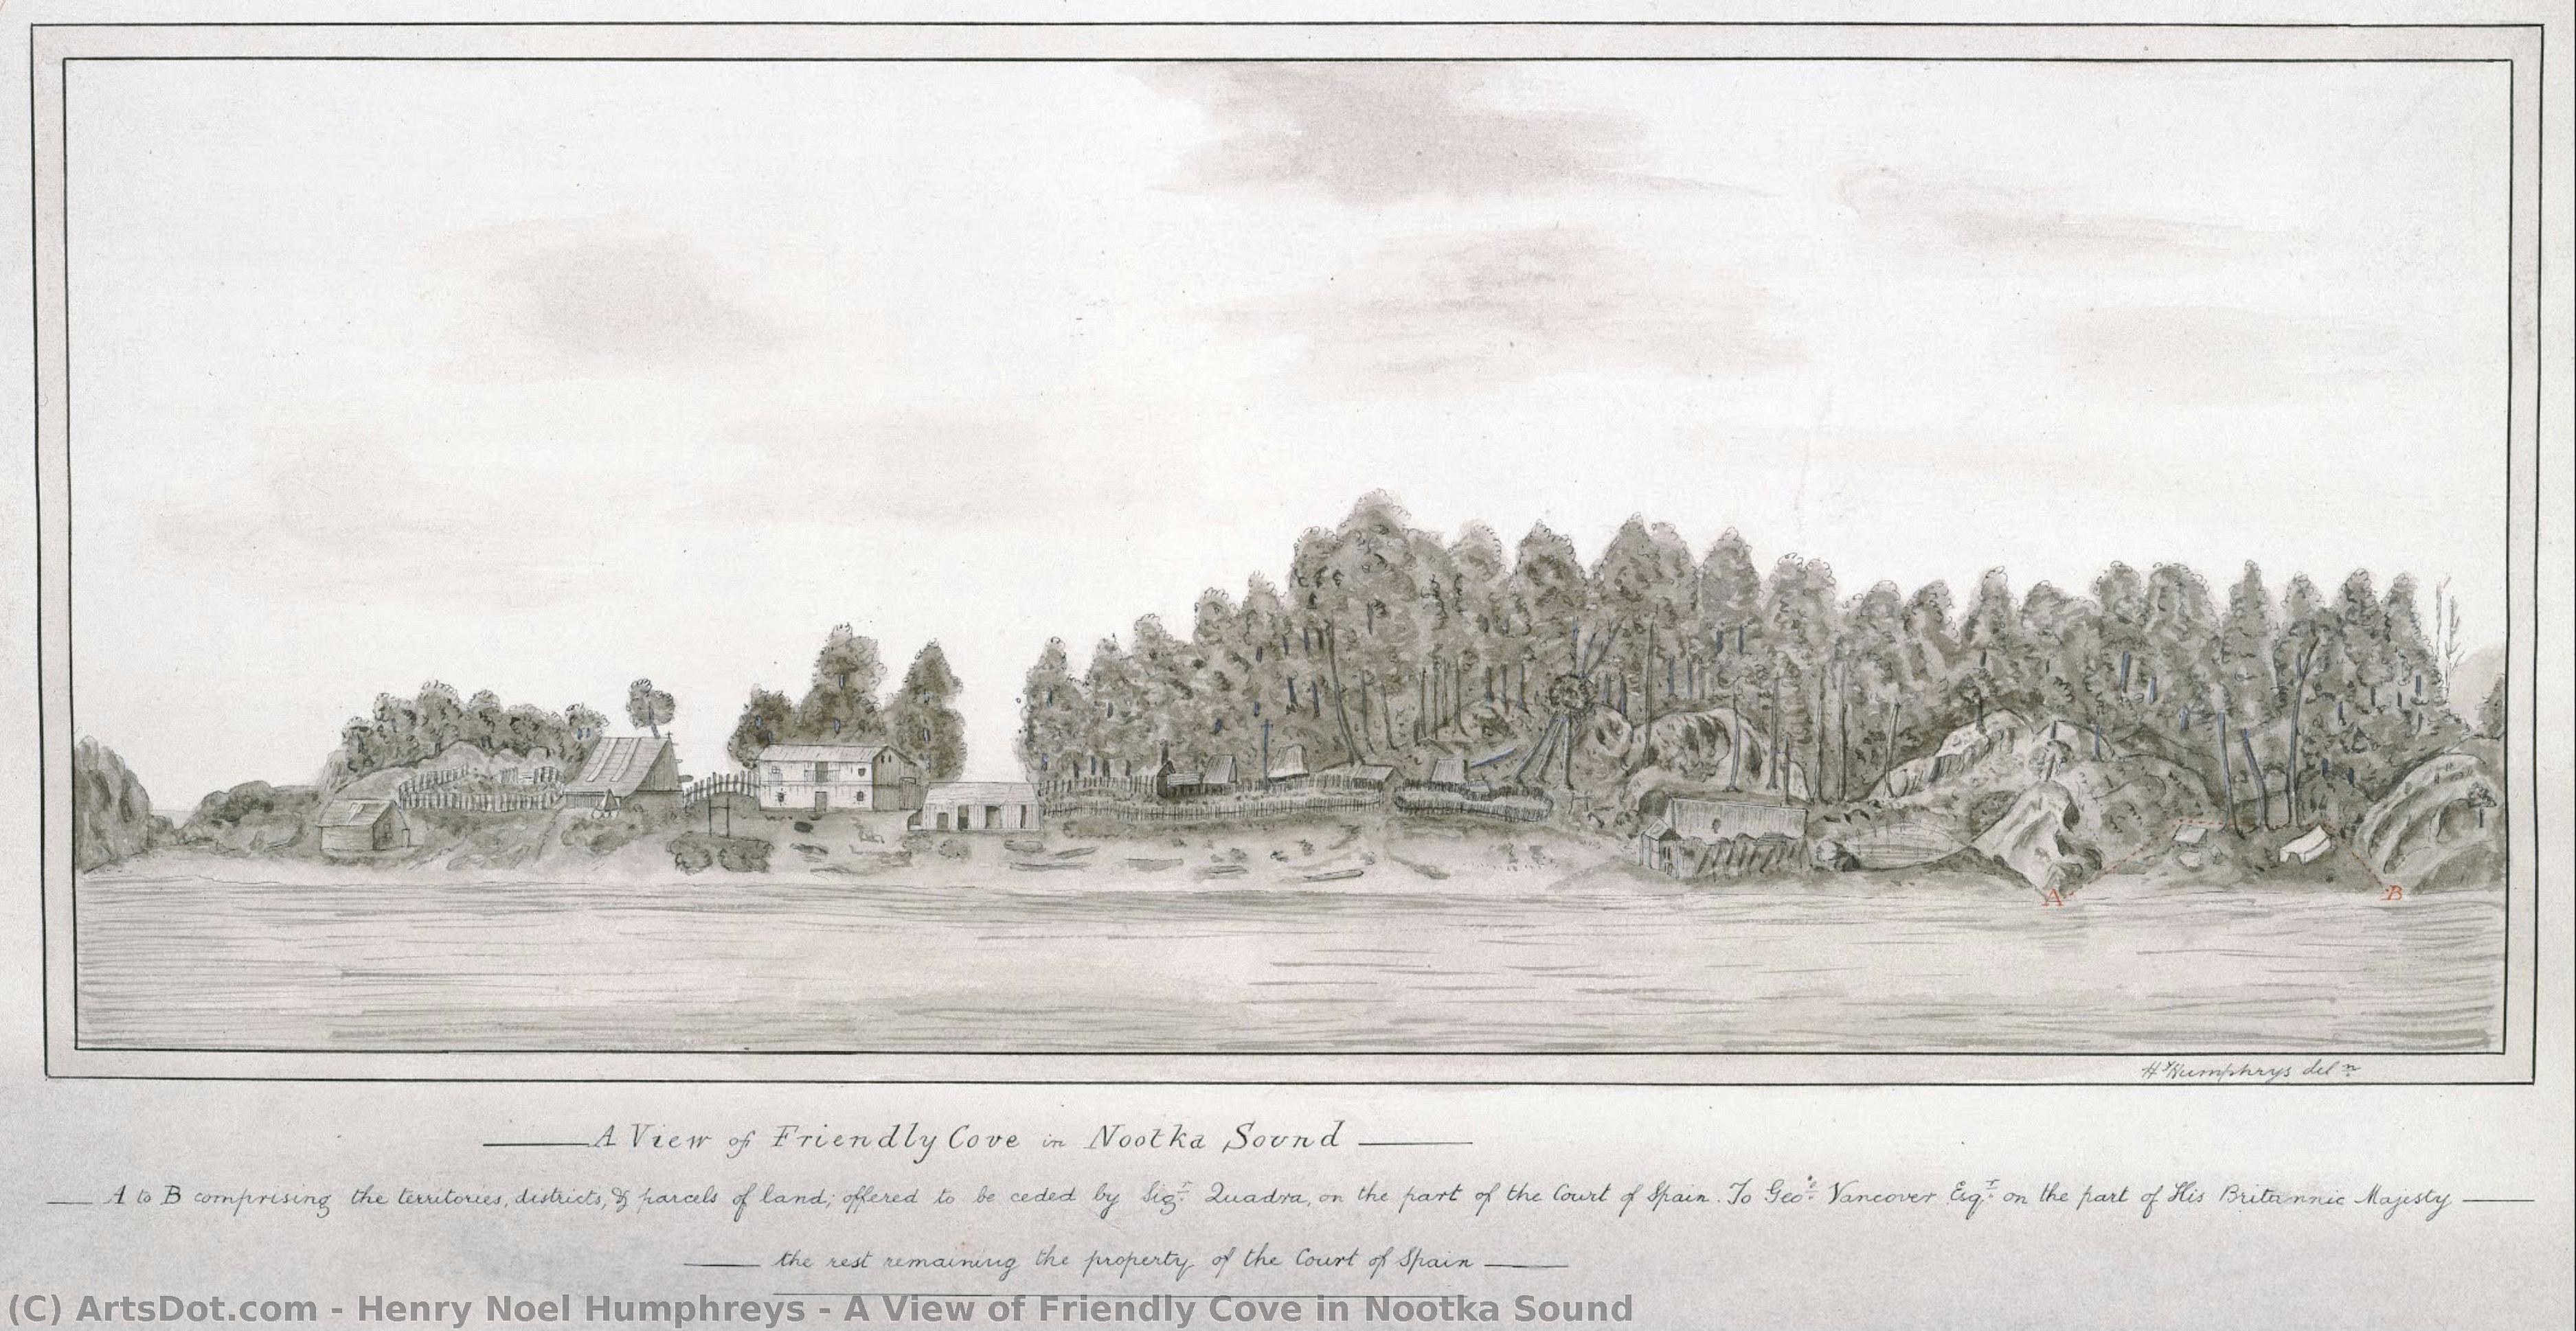 A B
Hy Humphrys deln
A View of Friendly Cove in Nootka Sound
A to B comprising the territories, districts, & parcels of land; offered to be ceded by Sigr Quadra, on the part of the Court of Spain. To Geoe Vancover Esqr on the part of His Britannic Majesty
the rest remaining the property of the Court of Spain
(C) ArtsDot.com - Henry Noel Humphreys - A View of Friendly Cove in Nootka Sound